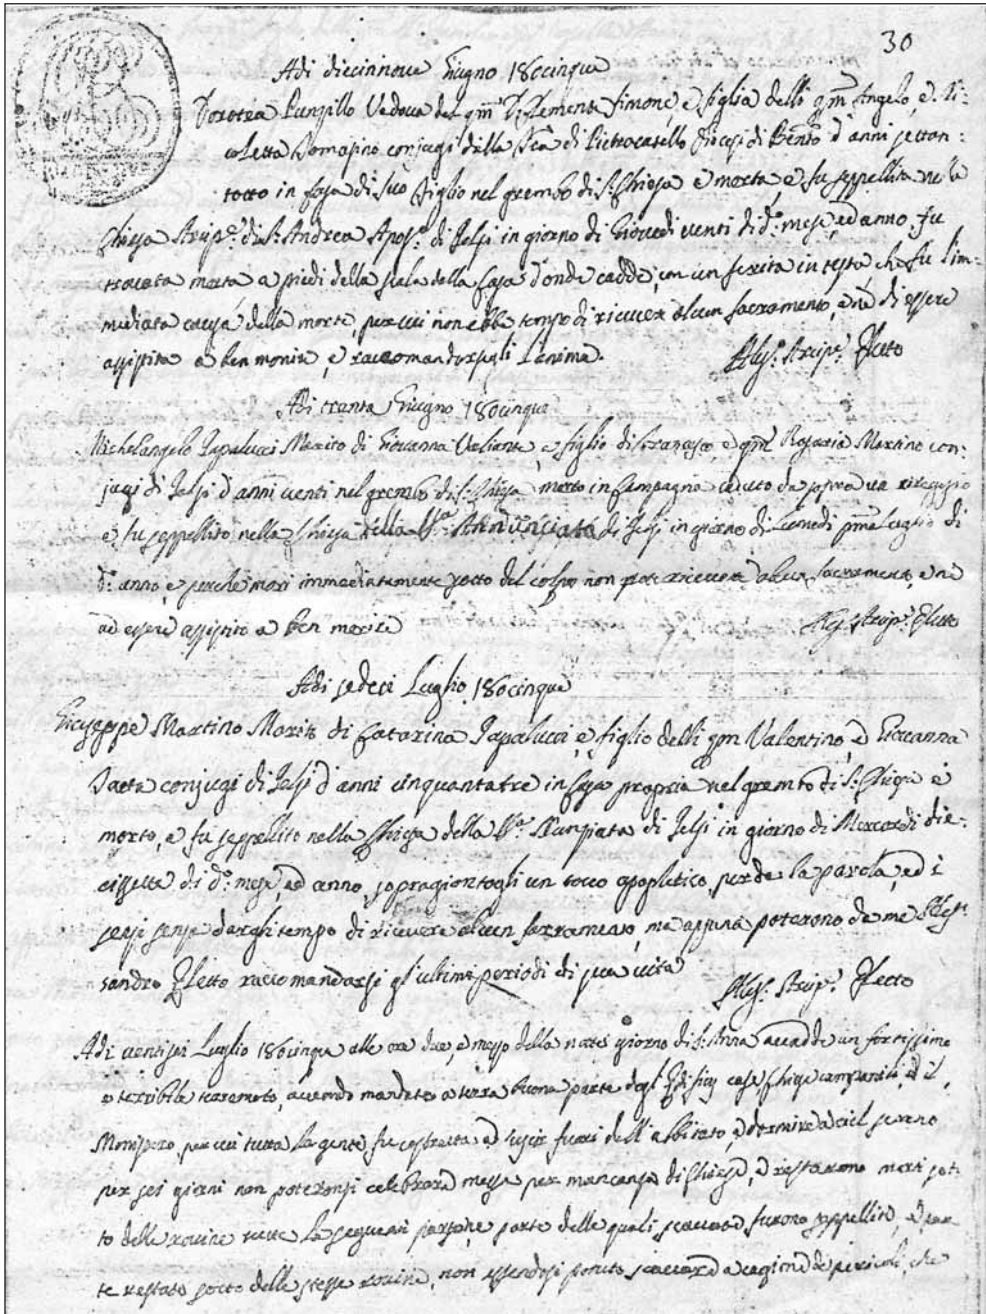 30
Adi diecinnove Giugno 180cinque
Dorotea Vedova del qm Clemente Simone, e figlia delli qm Angelo, e Ni-
coletta conjugi della di Pietracatello Diocesi di d'anni settan-
totto in Casa di suo figlio nel grembo di S. Chiesa è morta e fu seppellita nela
Chiesa Arcip. di S. Andrea Apos. di Jelsi in giorno di Giovedi venti di d. mese, ed anno. Fu
trovata morta a piedi della scala della Casa d'onde cadde, con un ferita in testa che fu l'im-
mediata causa della morte, per cui non ebbe tempo di ricever alcun sacramento, e nè di essere
assistita a ben morire, e raccomandarsegli l'anima. Arcip.
Adi trenta Giugno 180cinque
Michelangelo Iapalucci Marito di Giovanna Valiante, e figlio di Francesco, e qm Rosaria Martino con-
jugi di Jelsi d'anni venti nel grembo di S. Chiesa morto in Campagna caduto da sopra un
e fu seppellito nella Chiesa della Annunciata di Jelsi in giorno di Lunedi Luglio di
d. anno, e perche morì immediatamente del colpo non potè ricevere alcun sacramento, e nè
ad essere assistito a ben morire Arcip.
Adi sedeci Luglio 180cinque
Giuseppe Martino Marito di Catarina Iapalucci, e figlio delli qm Valentino, e Giovanna
conjugi di Jelsi d'anni cinquantatre in Casa propria nel grembo di S. Chiesa è
morto, e fu seppellito nella Chiesa della Nunziata di Jelsi in giorno di Mercordi die-
cissette di d. mese, ed anno, sopragiontogli un tocco apopletico, perde la parola, ed i
sensi senza dargli tempo di ricevere alcun sacramento, ma appena poterono da me Ales-
sandro raccomandarsi gl'ultimi periodi di sua vita Arcip.
Adi ventisei Luglio 180cinque alle ore due, e mezzo della notte giorno di S. Anna accadde un fortissimo
e terribile teremoto, avendo mandato a terra buona parte degl'Edificj case, Chiese campanili, ed il
Monistero, per cui tutta la gente fu costretta ad uscir fuori dell'abbitato, e dormire a ciel sereno
per sei giorni non poteronsi celebrare messe per mancanza di Chiese, e restarono morti sot-
to delle rovine tutte le seguenti persone, parte delle quali scavate, furono seppellite, e par-
te restate sotto delle stesse rovine, non essendosi potute scavare a cagione de pericoli, che